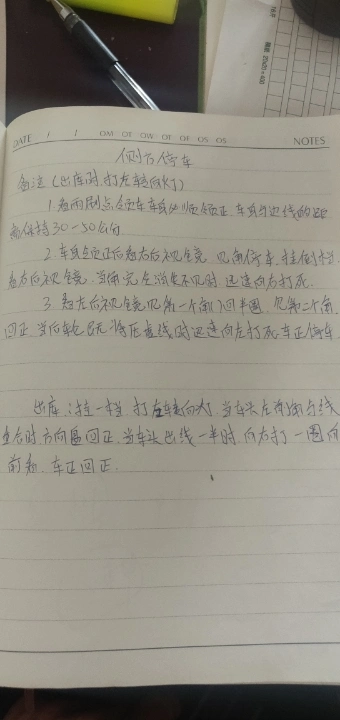 DATE / / MO OT OW OT OF OS OS NOTES
侧方停车
备注(出库时.打左转向灯)
1.看雨刷点 车身 车身与边线的距
离保持30-50公分
2.车身 正后看右后视镜.见角停车.挂倒档
看右后视镜.当角完全消失不见时.迅速向右打死.
3.看左后视镜见第一个角门回半圈.见第二个角
回正.当后轮 压虚线时迅速向左打死.车正停车
出库:挂一档.打左转向灯.当车头左 与线
重合时方向 回正.当车头出线一半时.向右打一圈向
前 .车正回正.